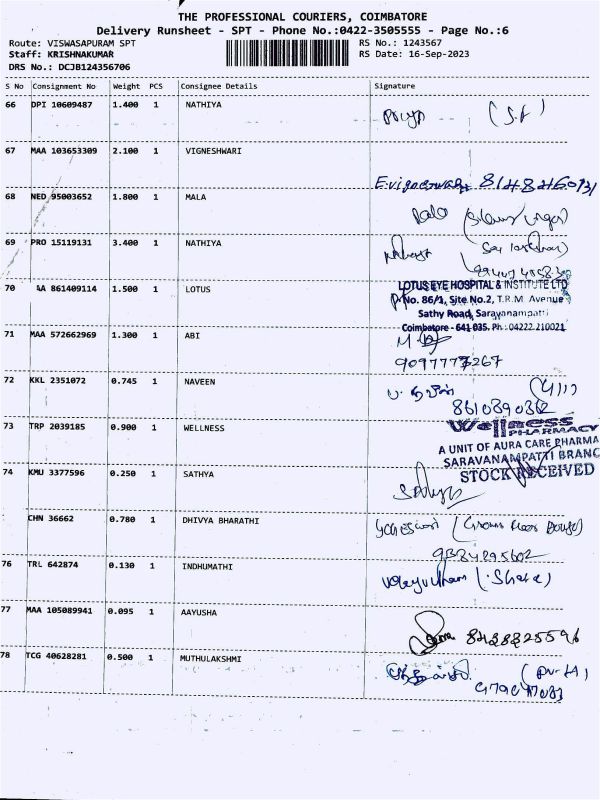 THE PROFESSIONAL COURIERS, COIMBATORE
Delivery Runsheet - SPT - Phone No.:0422-3505555 - Page No.:6
Route: VISWASAPURAM SPT RS No.: 1243567
Staff: KRISHNAKUMAR RS Date: 16-Sep-2023
DRS No.: DCJB124356706
S No Consignment No Weight PCS Consignee Details Signature
66 DPI 10609487 1.400 1 NATHIYA
Priya (S.F)
67 MAA 103653309 2.100 1 VIGNESHWARI
68 NED 95003652 1.800 1 MALA
69 PRO 15119131 3.400 1 NATHIYA
70 AA 861409114 1.500 1 LOTUS
LOTUS EYE HOSPITAL & INSTITUTE LTD
No. 86/1, Site No.2, T.R.M. Avenue
Sathy Road, Saravanampatti
Coimbatore - 641 035. Ph : 04222 210021
71 MAA 572662969 1.300 1 ABI
9097773267
72 KKL 2351072 0.745 1 NAVEEN
8610890362
73 TRP 2039185 0.900 1 WELLNESS
Wellness
PHARMACY
A UNIT OF AURA CARE PHARMA
SARAVANAMPATTI BRANC
STOCK RECEIVED
74 KMU 3377596 0.250 1 SATHYA
Sathya
CHN 36662 0.780 1 DHIVYA BHARATHI
76 TRL 642874 0.130 1 INDHUMATHI
77 MAA 105089941 0.095 1 AAYUSHA
8428225596
78 TCG 40628281 0.500 1 MUTHULAKSHMI